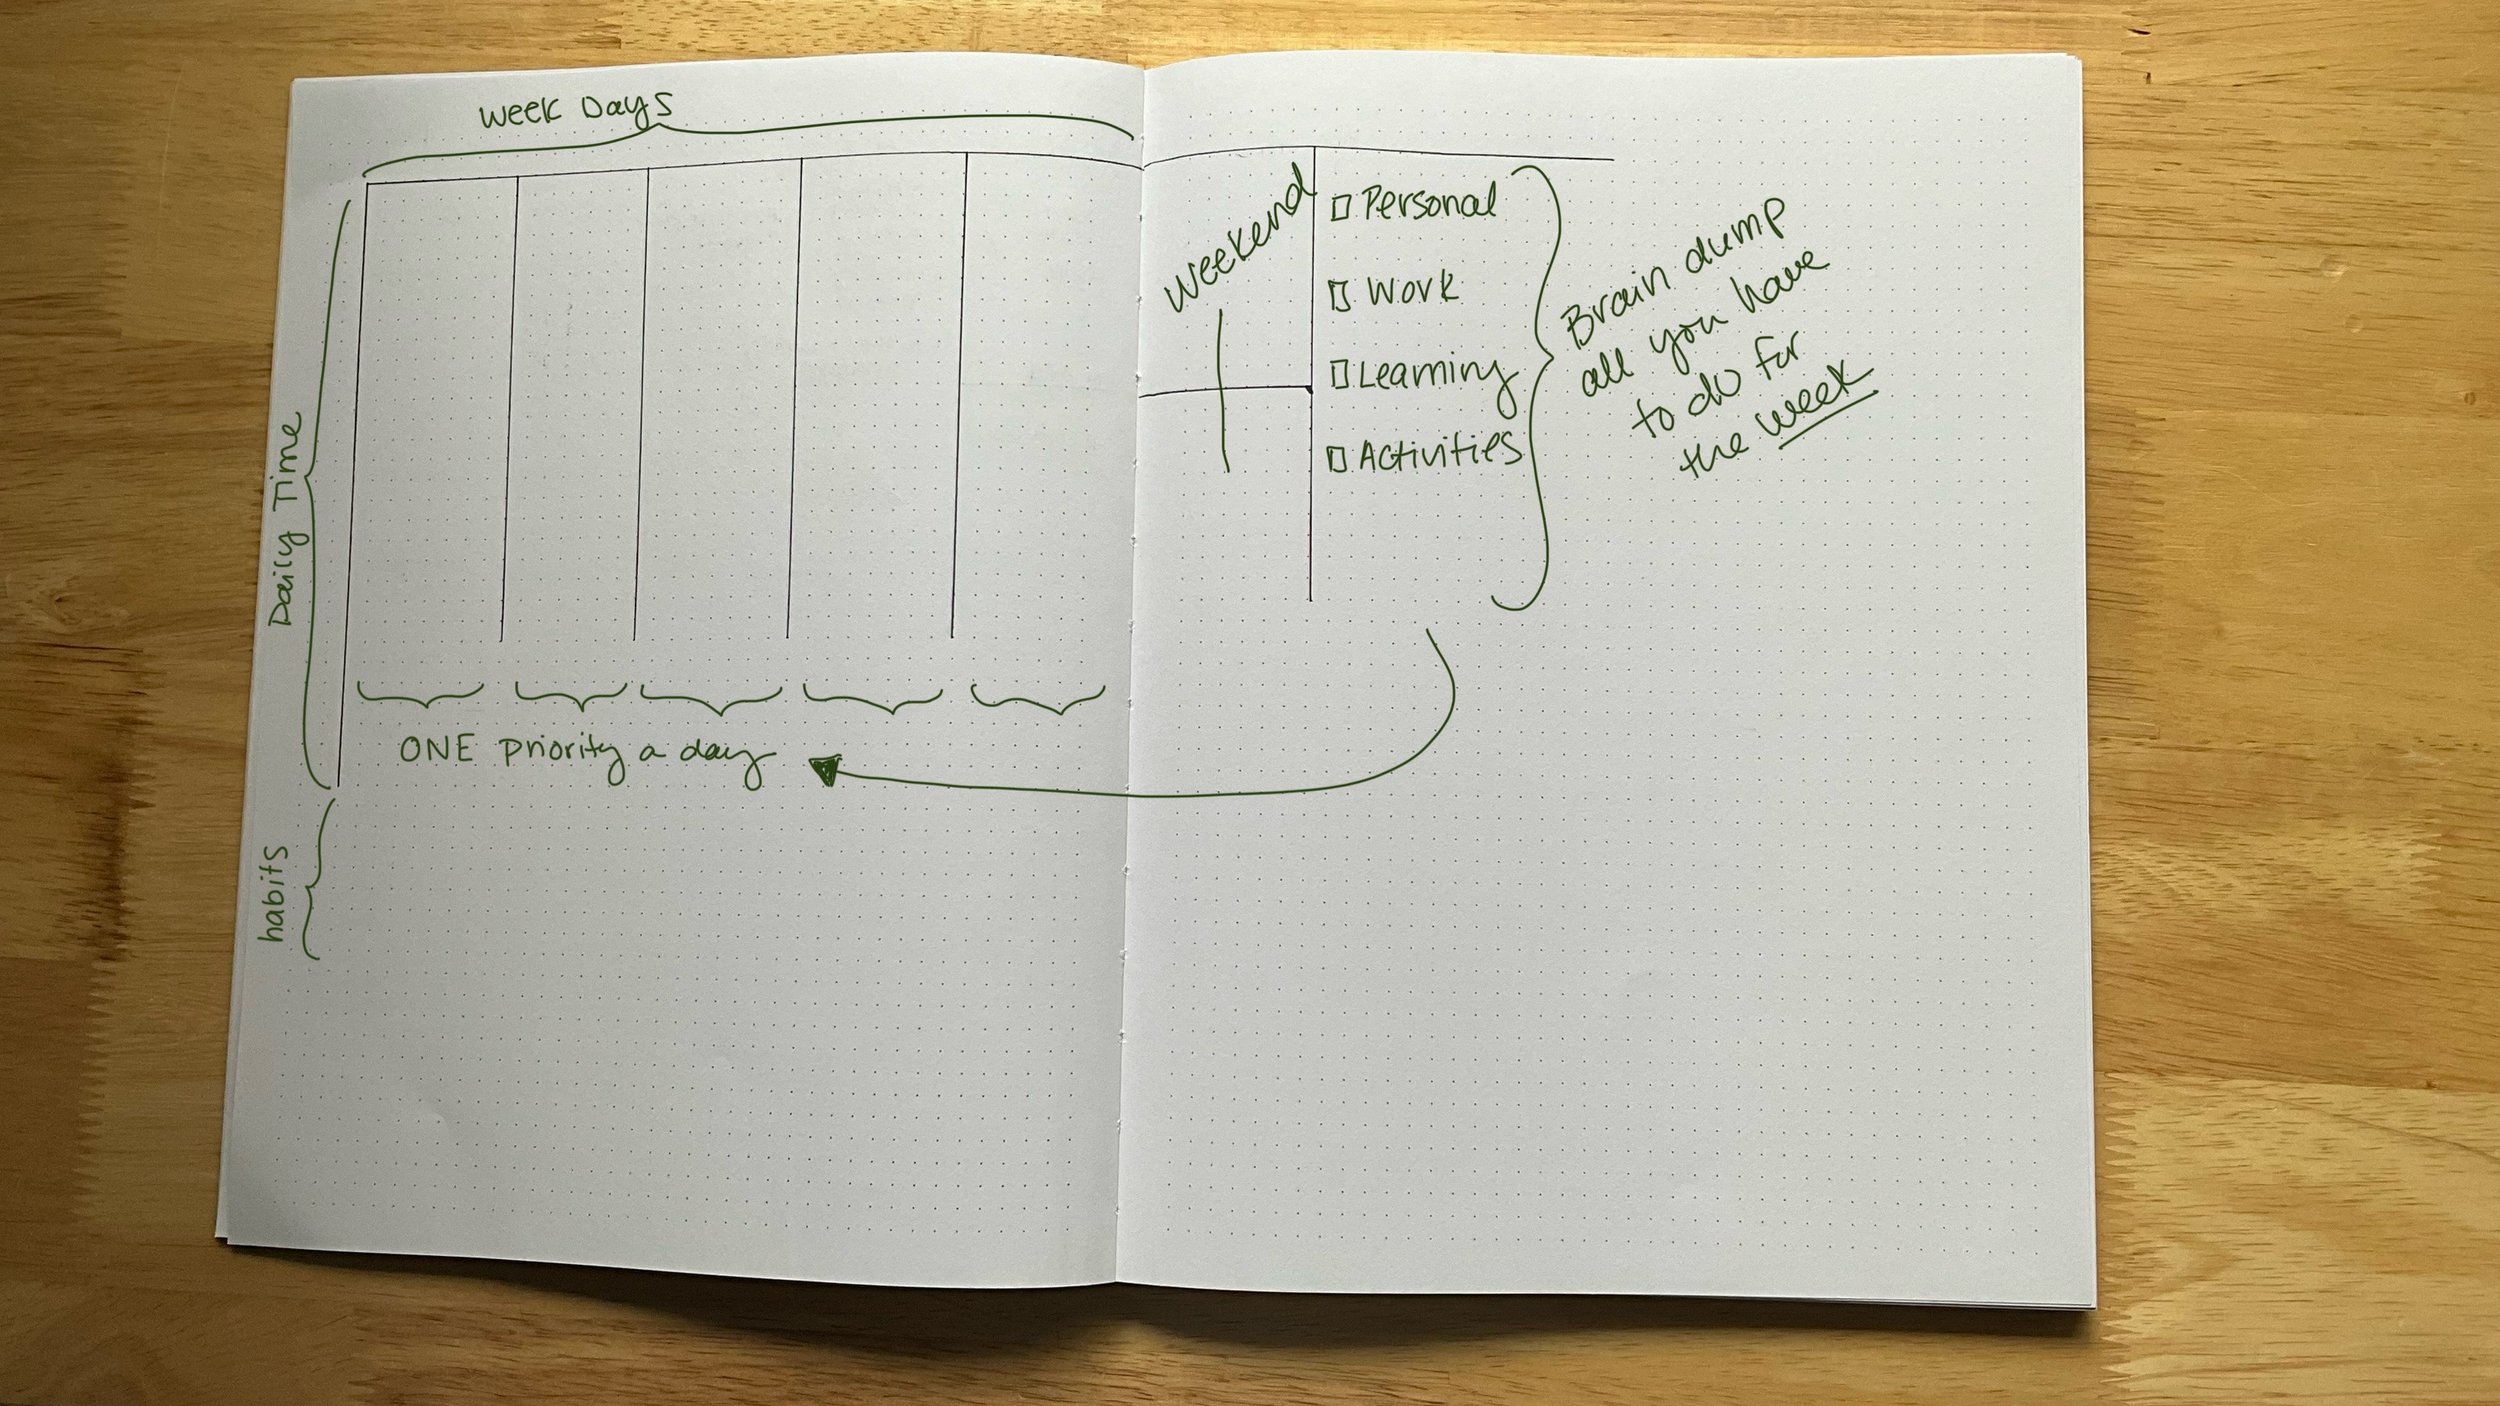 Week Days
Daily Time
habits
ONE priority a day
Weekend
Personal
Work
Learning
Activities
Brain dump
all you have
to do for
the week